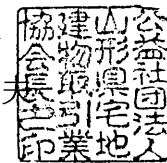 公益社団法人
山形県宅地
建物取引業
協会長之印
夫